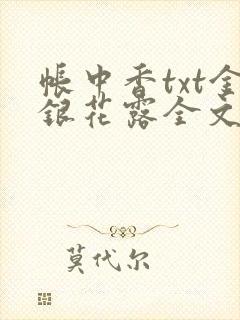 帐中香txt金
银花露全文
莫代尔